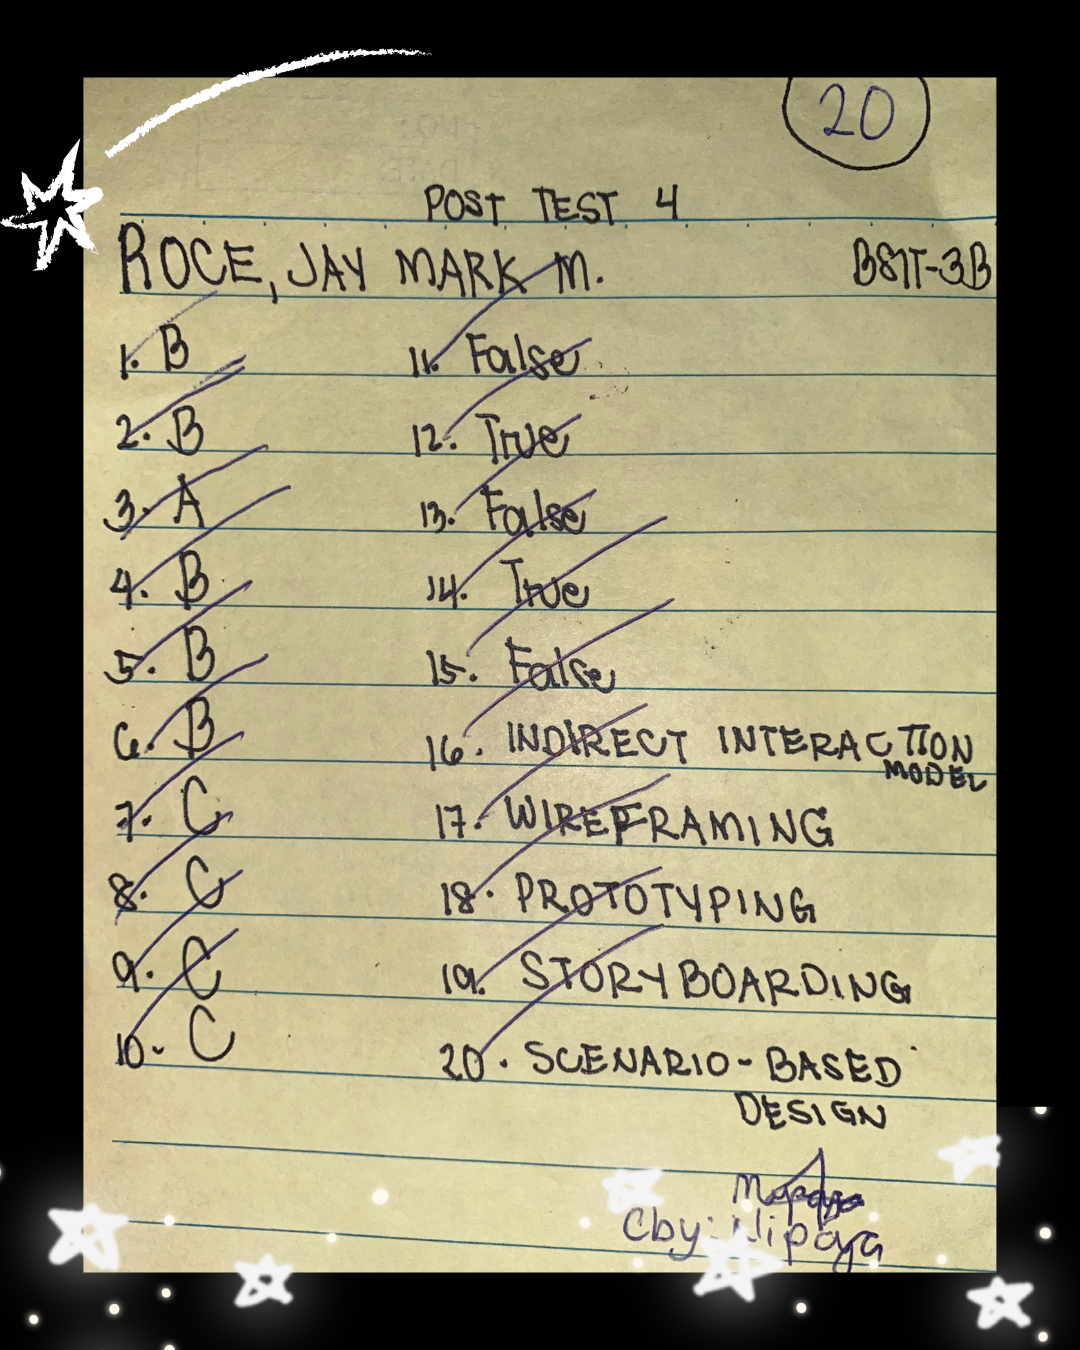 20
POST TEST 4
ROCE, JAY MARK M. BSIT-3B
1. B
2. B
3. A
4. B
5. B
6. B
7. C
8. C
9. C
10. C
11. False
12. True
13. False
14. True
15. False
16. INDIRECT INTERACTION
MODEL
17. WIREFRAMING
18. PROTOTYPING
19. STORYBOARDING
20. SCENARIO-BASED
DESIGN
Cby: